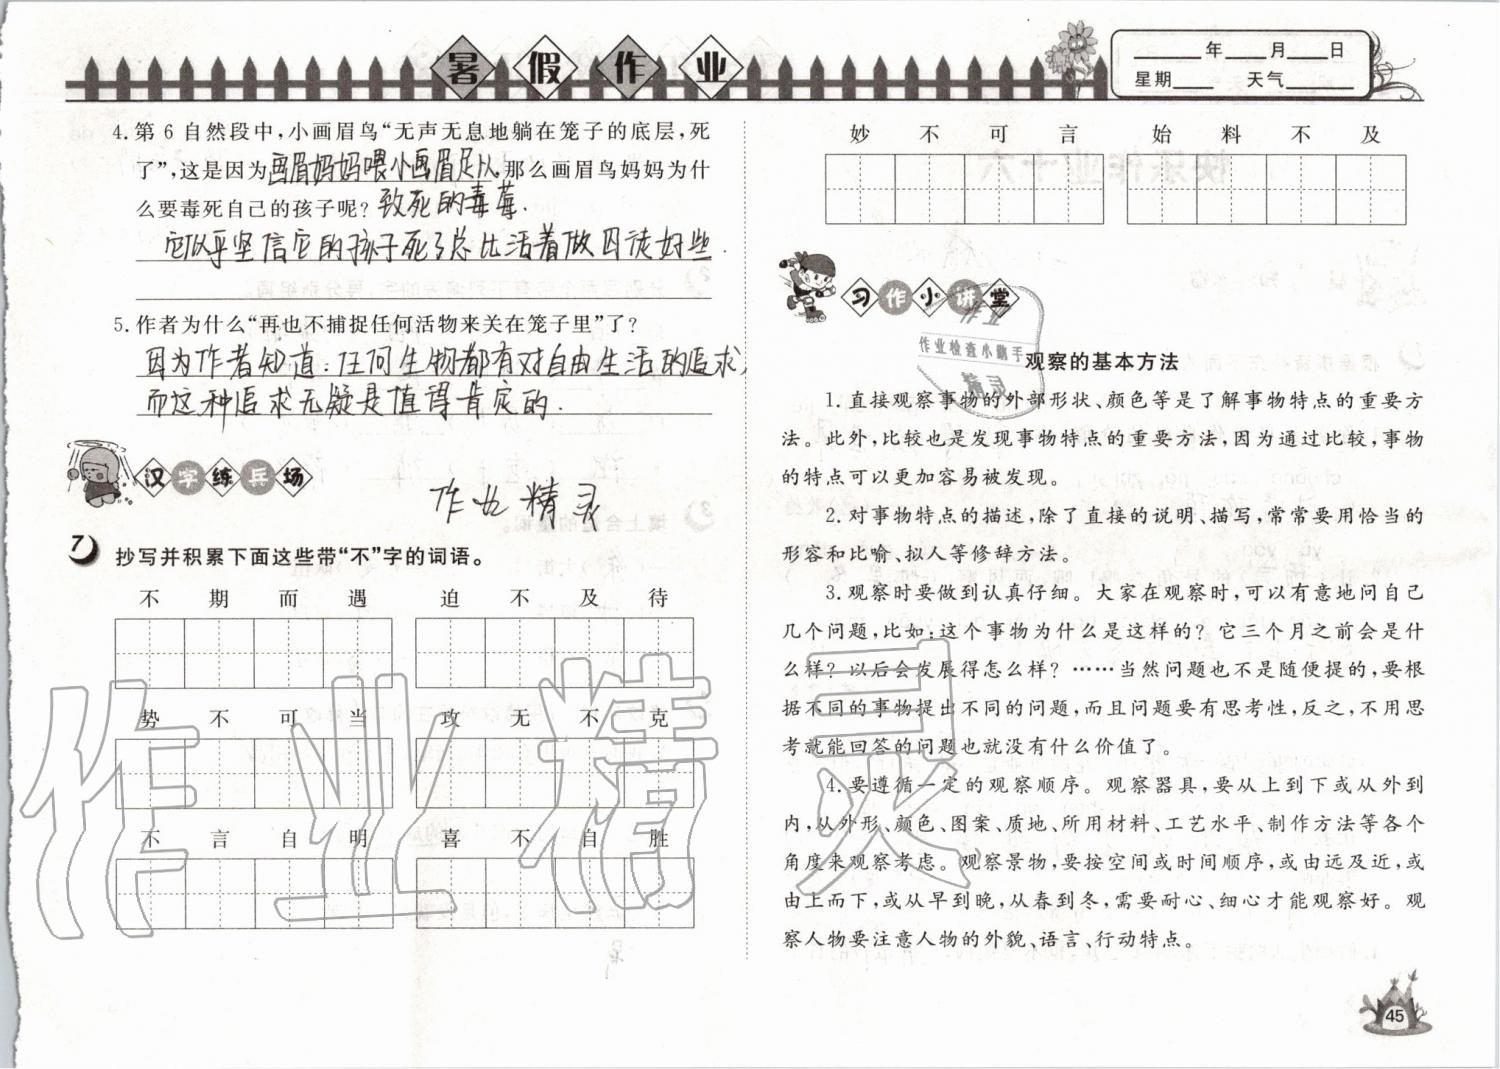 暑假作业
____年____月____日
星期____ 天气______
4.第6自然段中,小画眉鸟“无声无息地躺在笼子的底层,死
了”,这是因为画眉妈妈喂小画眉足以,那么画眉鸟妈妈为什
么要毒死自己的孩子呢?致死的毒莓.
它似乎坚信它的孩子死了总比活着做囚徒好些
5.作者为什么“再也不捕捉任何活物来关在笼子里”了?
因为作者知道:任何生物都有对自由生活的追求,
而这种追求无疑是值得肯定的.
汉字练兵场
作业精灵
7 抄写并积累下面这些带“不”字的词语。
不期而遇 迫不及待
势不可当 攻无不克
不言自明 喜不自胜
妙不可言 始料不及
习作小讲堂
作业检查小助手
精灵
观察的基本方法
1.直接观察事物的外部形状、颜色等是了解事物特点的重要方
法。此外,比较也是发现事物特点的重要方法,因为通过比较,事物
的特点可以更加容易被发现。
2.对事物特点的描述,除了直接的说明、描写,常常要用恰当的
形容和比喻、拟人等修辞方法。
3.观察时要做到认真仔细。大家在观察时,可以有意地问自己
几个问题,比如:这个事物为什么是这样的?它三个月之前会是什
么样?以后会发展得怎么样?……当然问题也不是随便提的,要根
据不同的事物提出不同的问题,而且问题要有思考性,反之,不用思
考就能回答的问题也就没有什么价值了。
4.要遵循一定的观察顺序。观察器具,要从上到下或从外到
内,从外形、颜色、图案、质地、所用材料、工艺水平、制作方法等各个
角度来观察考虑。观察景物,要按空间或时间顺序,或由远及近,或
由上而下,或从早到晚,从春到冬,需要耐心、细心才能观察好。观
察人物要注意人物的外貌、语言、行动特点。
作业精灵
45